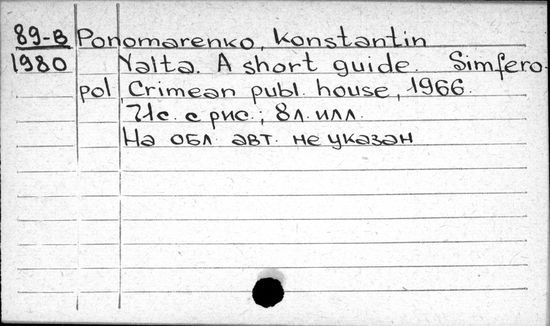 89-В Ponomarenko, Konstantin
1980 Yalta. A short guide. Simfero-
pol, Crimean publ. house, 1966.
71с. с рис.; 8л. илл.
На обл. авт. не указан